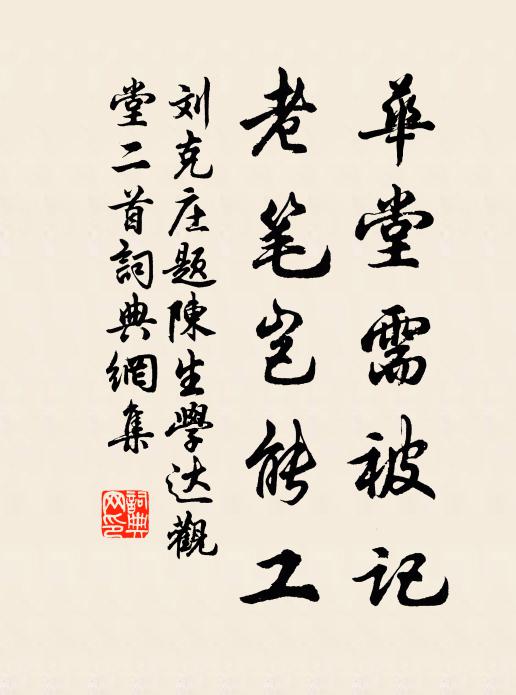 華堂需被记
老笔岂能工
刘克庄题陳生學达觀
堂二首詞典網集
詞典
网印